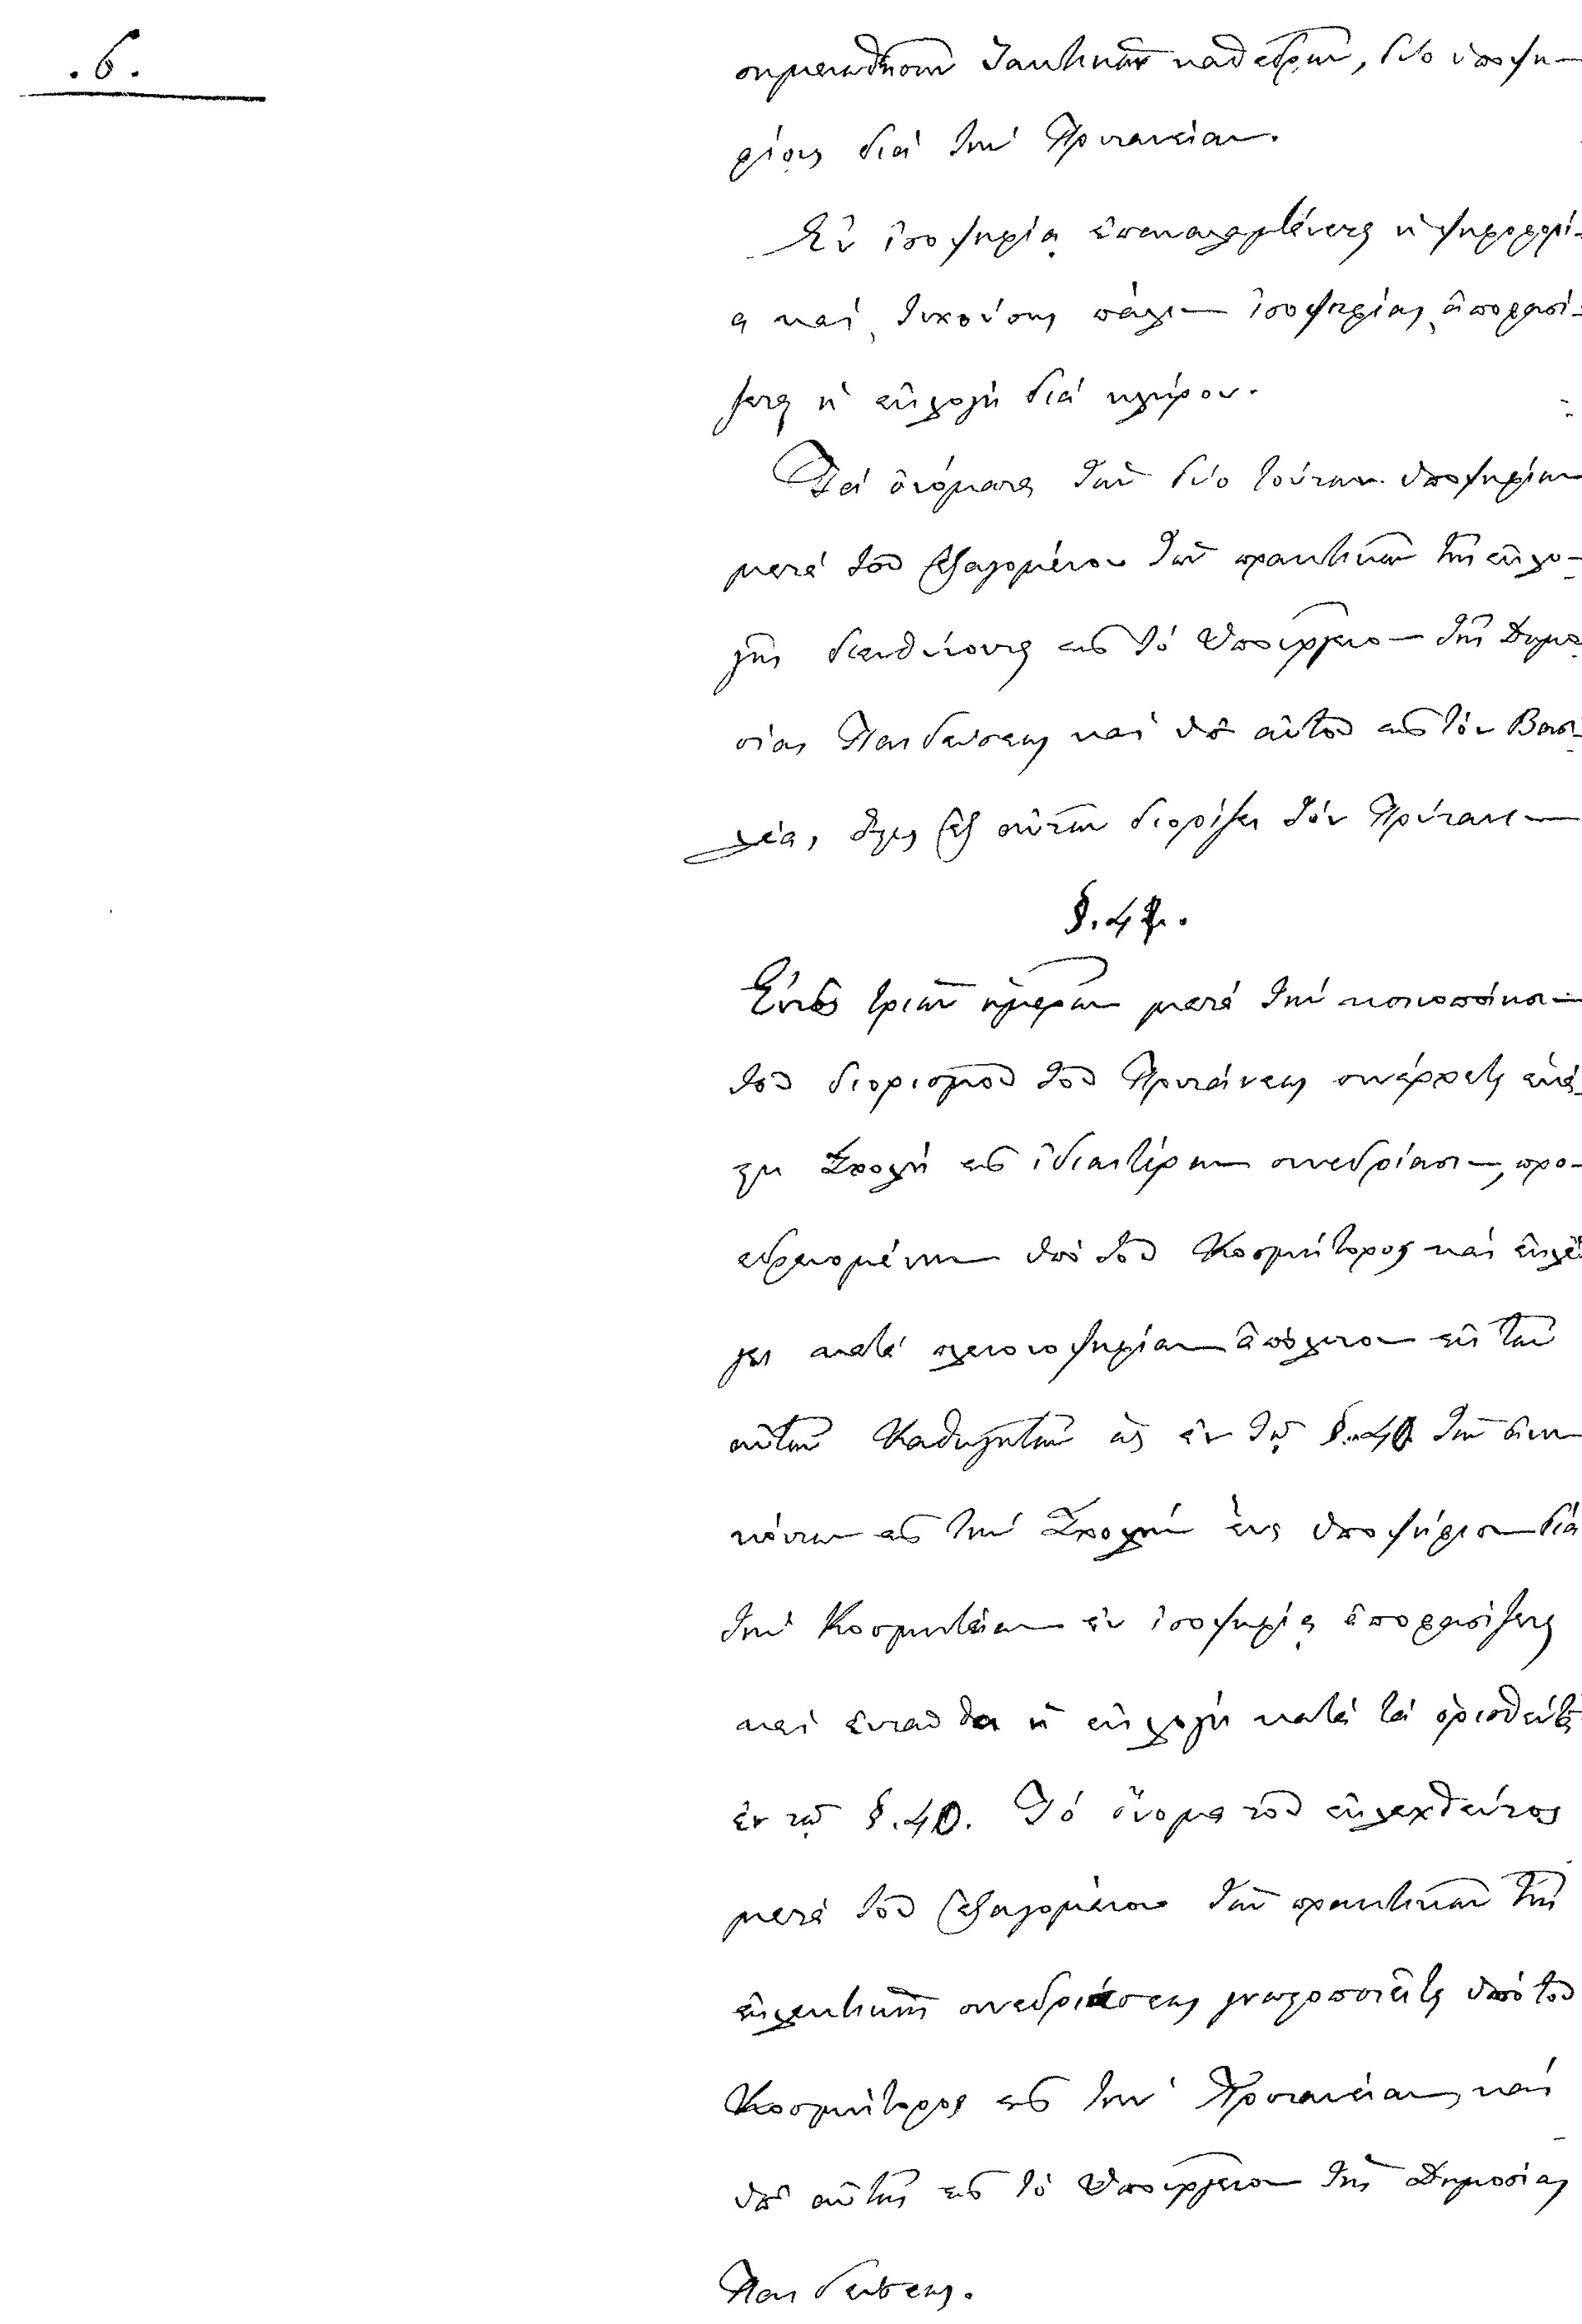 .6.
σημειωθησομ τακτικῶν καθεδρῶν, δύο ὑποψη-
φίους διὰ τὴν Πρυτανείαν.
Ἐν ἰσοψηφίᾳ ἐπαναλαμβάνεται ἡ ψηφοφορί-
α καὶ, τυχούσης πάλιν ἰσοψηφίας, ἀποφασί-
ζεται ἡ ἐκλογὴ διὰ κλήρου.
Τὰ ὀνόματα τῶν δύο τούτων ὑποψηφίων
μετὰ τοῦ ἐξαγομένου τῶν πρακτικῶν τῆς ἐκλο-
γῆς διευθύνονται εἰς τὸ Ὑπουργεῖον τῆς Δημο
σίας Παιδεύσεως καὶ ὑπ' αὐτοῦ εἰς τὸν Βασι-
λέα, ὅστις ἐξ αὐτῶν διορίζει τὸν Πρύτανιν
§. 42.
Ἐντὸς τριῶν ἡμερῶν μετὰ τὴν κοινοποίησιν
τοῦ διορισμοῦ τοῦ Πρυτάνεως συνέρχεται ἑκά-
στη Σχολὴ εἰς ἰδιαιτέραν συνεδρίασιν, προ-
εδρευομένην ὑπὸ τοῦ Κοσμήτορος καὶ ἐκλέ
γει κατὰ πλειονοψηφίαν ἀπόλυτον ἐκ τῶν
αὐτῶν Καθηγητῶν ὡς ἐν τῷ §. 40 τῶν ἀνη
κόντων εἰς τὴν Σχολὴν ἕνα ὑποψήφιον διὰ
τὴν Κοσμητείαν ἐν ἰσοψηφίᾳ ἀποφασίζεται
καὶ ἐνταῦθα ἡ ἐκλογὴ κατὰ τὰ ὁρισθέντα
ἐν τῷ §. 40. Τὸ ὄνομα τοῦ ἐκλεχθέντος
μετὰ τοῦ ἐξαγομένου τῶν πρακτικῶν τῆς
ἐκλεκτικῆς συνεδριάσεως γνωστοποιεῖται ὑπὸ τοῦ
Κοσμήτορος εἰς τὴν Πρυτανείαν, καὶ
ὑπ' αὐτῆς εἰς τὸ Ὑπουργεῖον τῆς Δημοσίας
Παιδεύσεως.